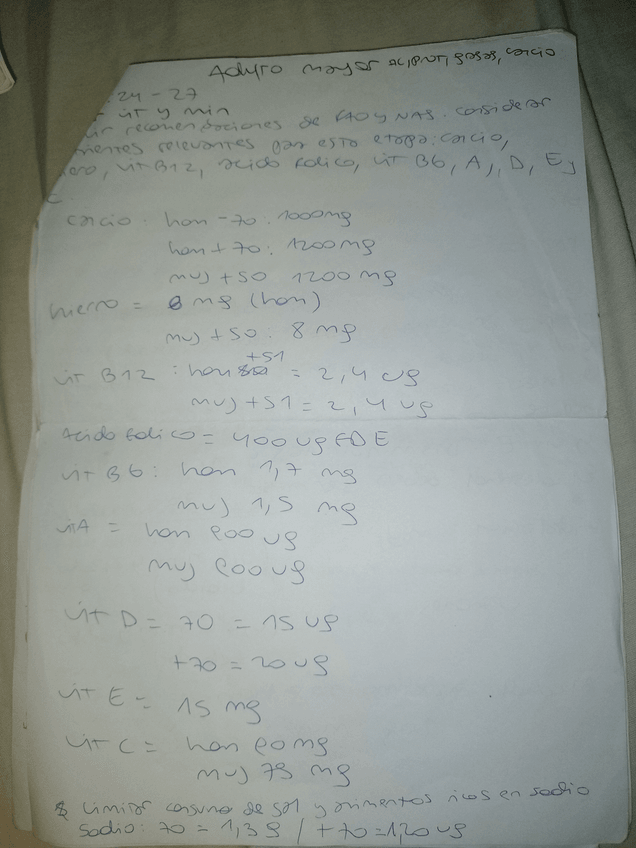 Adulto mayor AC, PROT, grasas, calcio
24 - 27
vit y min
recomendaciones de FAO y NAS. considerar
relevantes para esta etapa: calcio,
vit B12, acido folico, vit B6, A, D, E y
C.
calcio: hom -70: 1000mg
hom +70: 1200mg
muj +50 1200 mg
hierro = 8 mg (hom)
muj +50: 8 mg
vit B12: hom +51 = 2,4 ug
muj +51 = 2,4 ug
Acido folico = 400 ug FDE
vit B6: hom 1,7 mg
muj 1,5 mg
vit A = hom 900 ug
muj 600 ug
vit D = 70 = 15 ug
+70 = 20 ug
vit E = 15 mg
vit C = hom 90 mg
muj 75 mg
Limitar consumo de sal y alimentos ricos en sodio
Sodio: 70 = 1,3 g / +70 = 1,20 ug